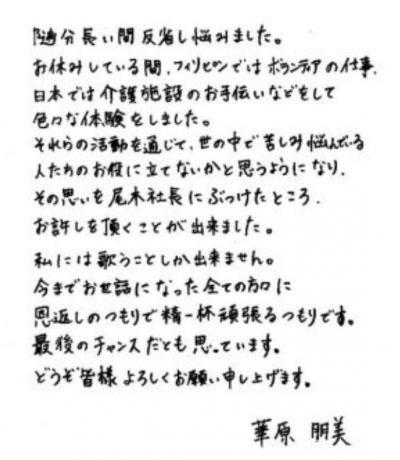 随分長い間反省し悩みました。
お休みしている間、フィリピンではボランティアの仕事、
日本では介護施設のお手伝いなどをして
色々な体験をしました。
それらの活動を通じて、世の中で苦しみ悩んでいる
人たちのお役に立てないかと思うようになり、
その思いを尾木社長にぶつけたところ、
お許しを頂くことが出来ました。
私には歌うことしか出来ません。
今までお世話になった全ての方々に
恩返しのつもりで精一杯頑張るつもりです。
最後のチャンスだとも思っています。
どうぞ皆様よろしくお願い申し上げます。
華原朋美